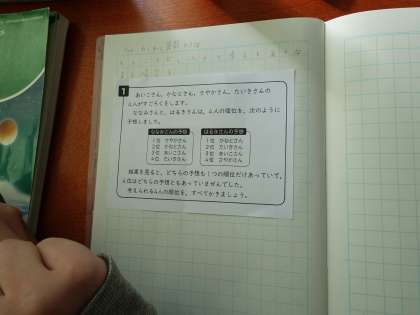 1
あいこさん，かなとさん，さやかさん，たいきさんの
4人がすごろくをします。
ななみさんと，はるきさんは，4人の順位を，次のように
予想しました。
ななみさんの予想
1位 さやかさん
2位 かなとさん
3位 あいこさん
4位 たいきさん
はるきさんの予想
1位 かなとさん
2位 たいきさん
3位 あいこさん
4位 さやかさん
結果を見ると，どちらの予想も1つの順位だけあっていて，
4位はどちらの予想ともあっていませんでした。
考えられる4人の順位を，すべてかきましょう。